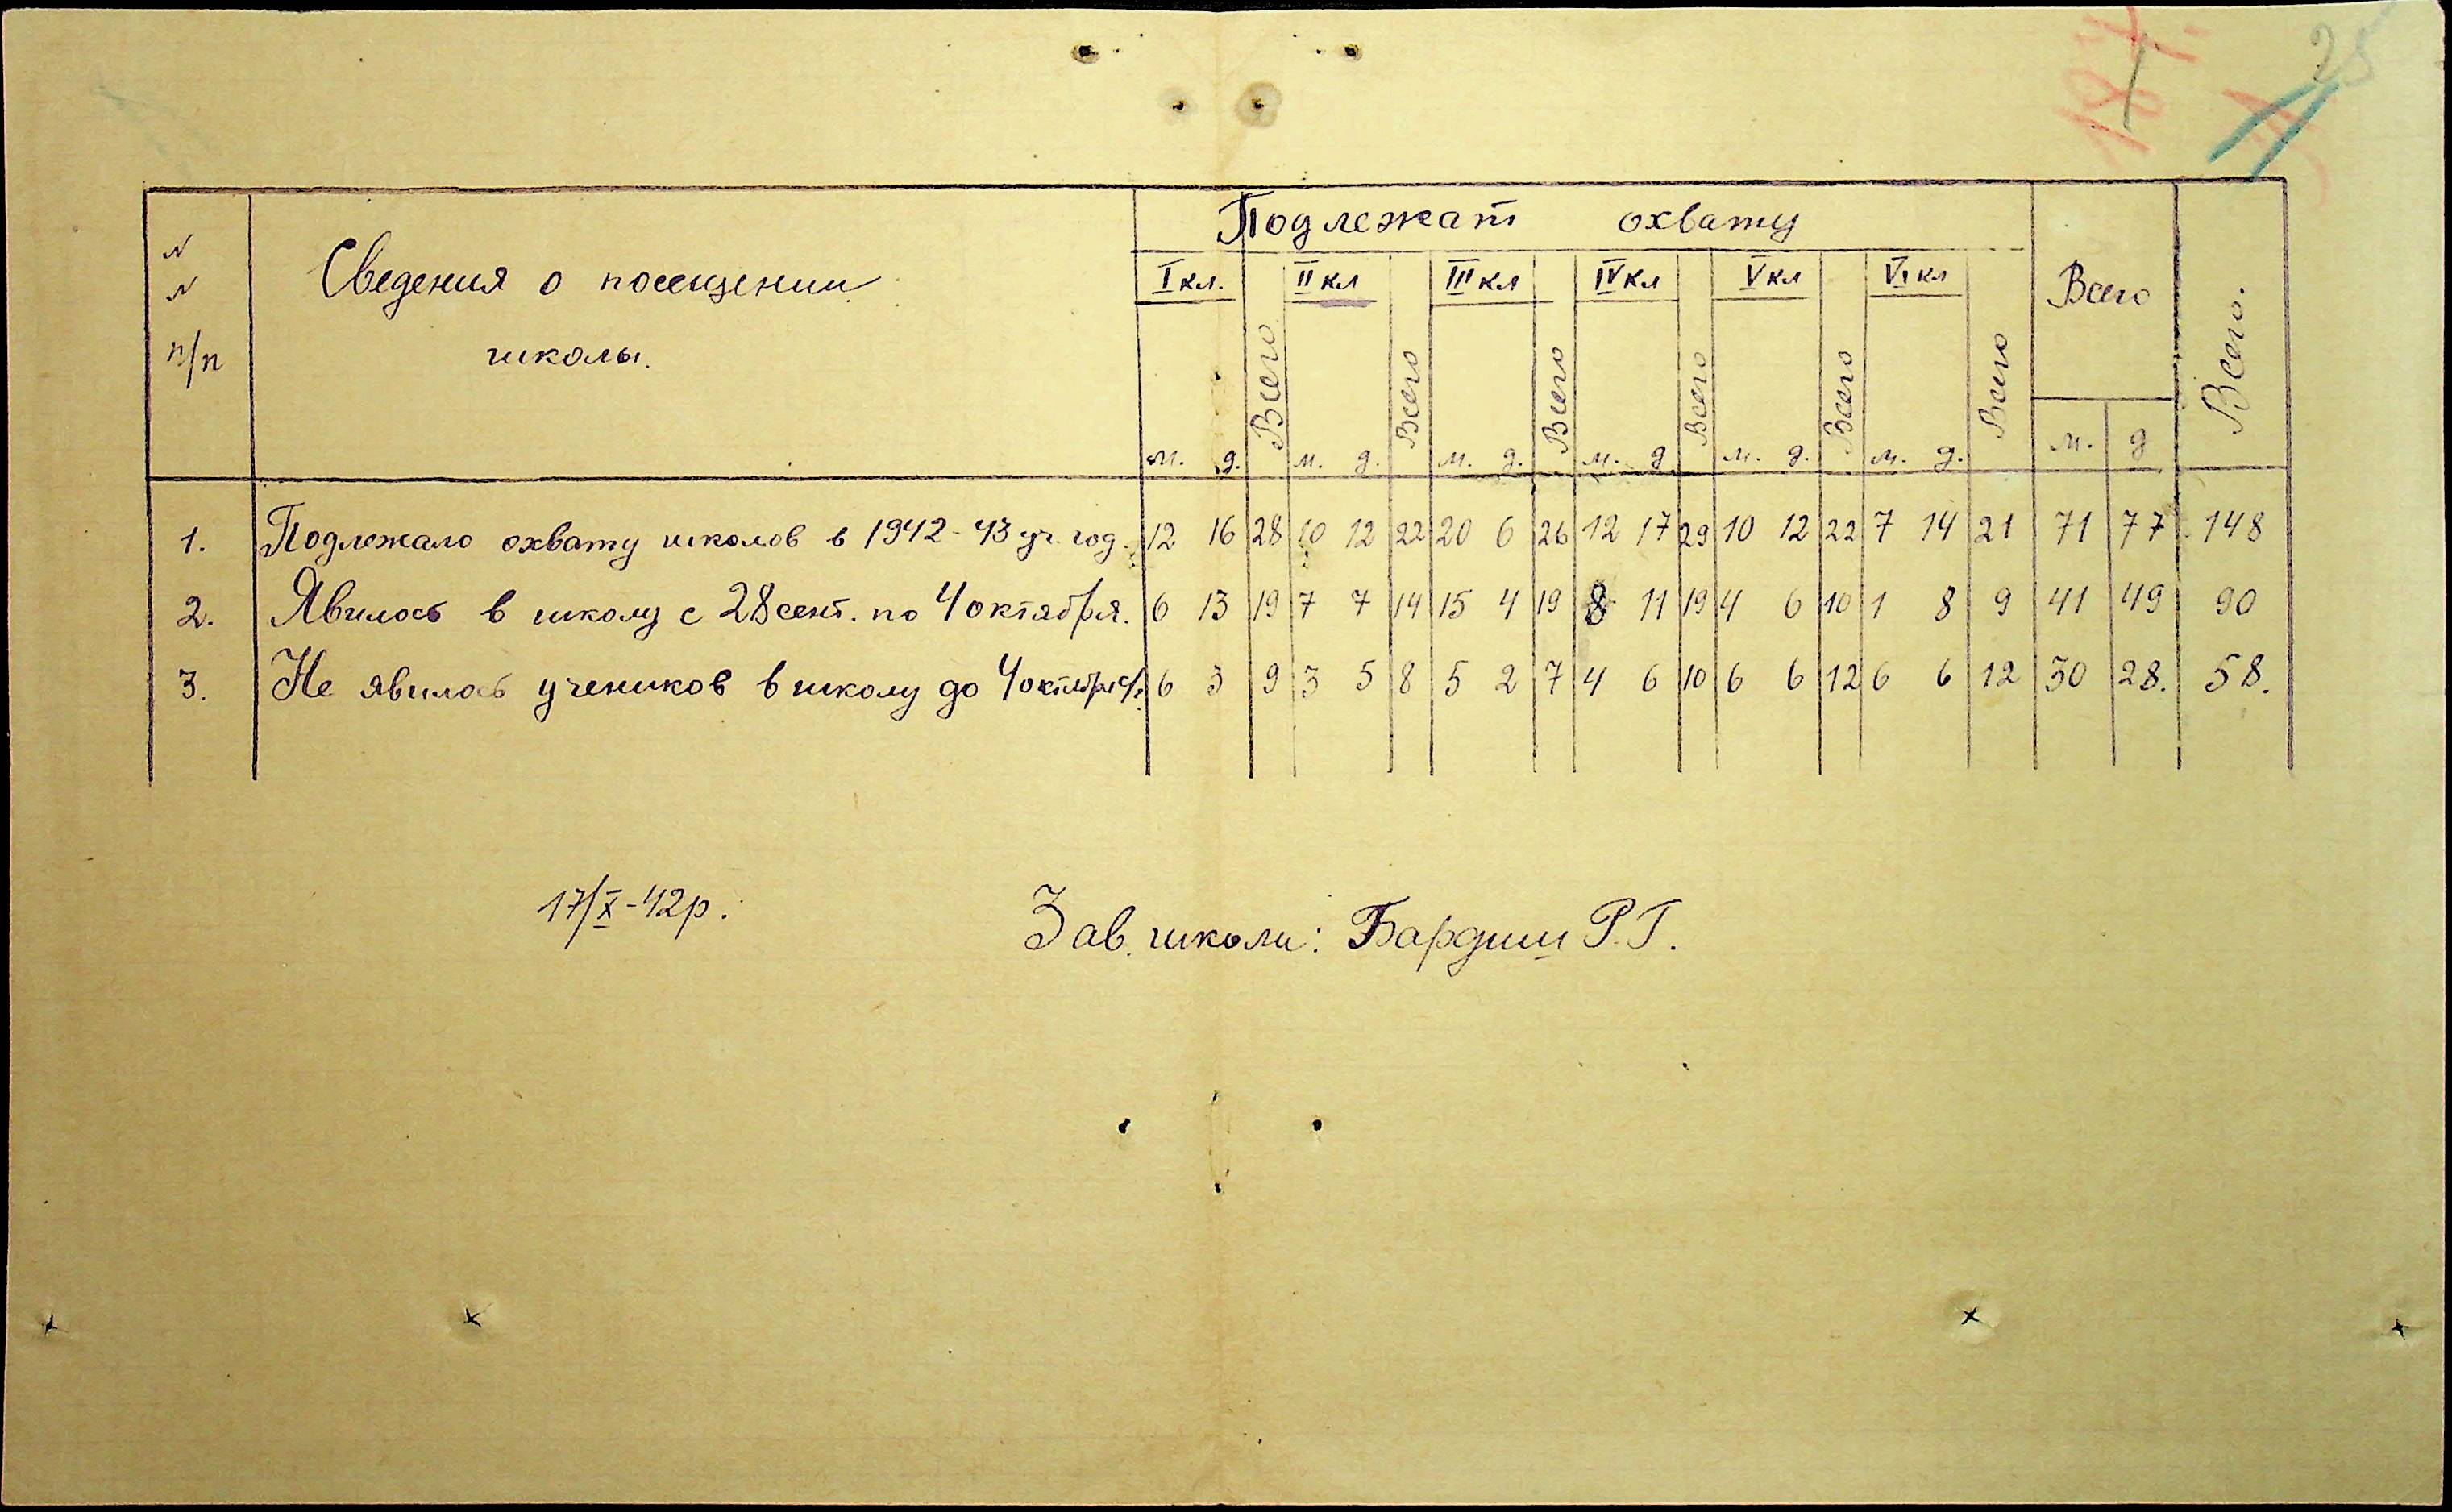 25
N Сведения о посещении школы. Подлежат охвату Всего Всего.
N
п/п
I кл. Всего II кл Всего III кл Всего IV кл Всего V кл Всего VI кл Всего
м. д. м. д. м. д. м. д. м. д. м. д. м. д
1. Подлежало охвату школов в 1942-43 уч. год. 12 16 28 10 12 22 20 6 26 12 17 29 10 12 22 7 14 21 71 77 148
2. Явилось в школу с 28 сент. по 4 октября. 6 13 19 7 7 14 15 4 19 8 11 19 4 6 10 1 8 9 41 49 90
3. Не явилось учеников в школу до 4 октября 6 3 9 3 5 8 5 2 7 4 6 10 6 6 12 6 6 12 30 28. 58.
17/X-42р.
Зав. школи: Бардиш Р.Г.